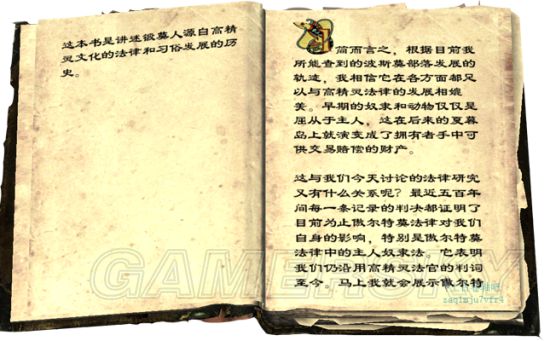 这本书是讲述锻莫人源自高精
灵文化的法律和习俗发展的历
史。
简而言之，根据目前我
所能查到的波斯莫部落发展的
轨迹，我相信它在各方面都足
以与高精灵法律的发展相媲
美。早期的奴隶和动物仅仅是
屈从于主人，这在后来的夏暮
岛上就演变成了拥有者手中可
供交易赔偿的财产。
这与我们今天讨论的法律研究
又有什么关系呢？最近五百年
间每一条记录的判决都证明了
目前为止傲尔特莫法律对我们
自身的影响，特别是傲尔特莫
法律中的主人奴隶法。它表明
我们仍沿用高精灵法官的判词
至今。马上我就会展示傲尔特
GAMERSKY
zaqimju7vfr4